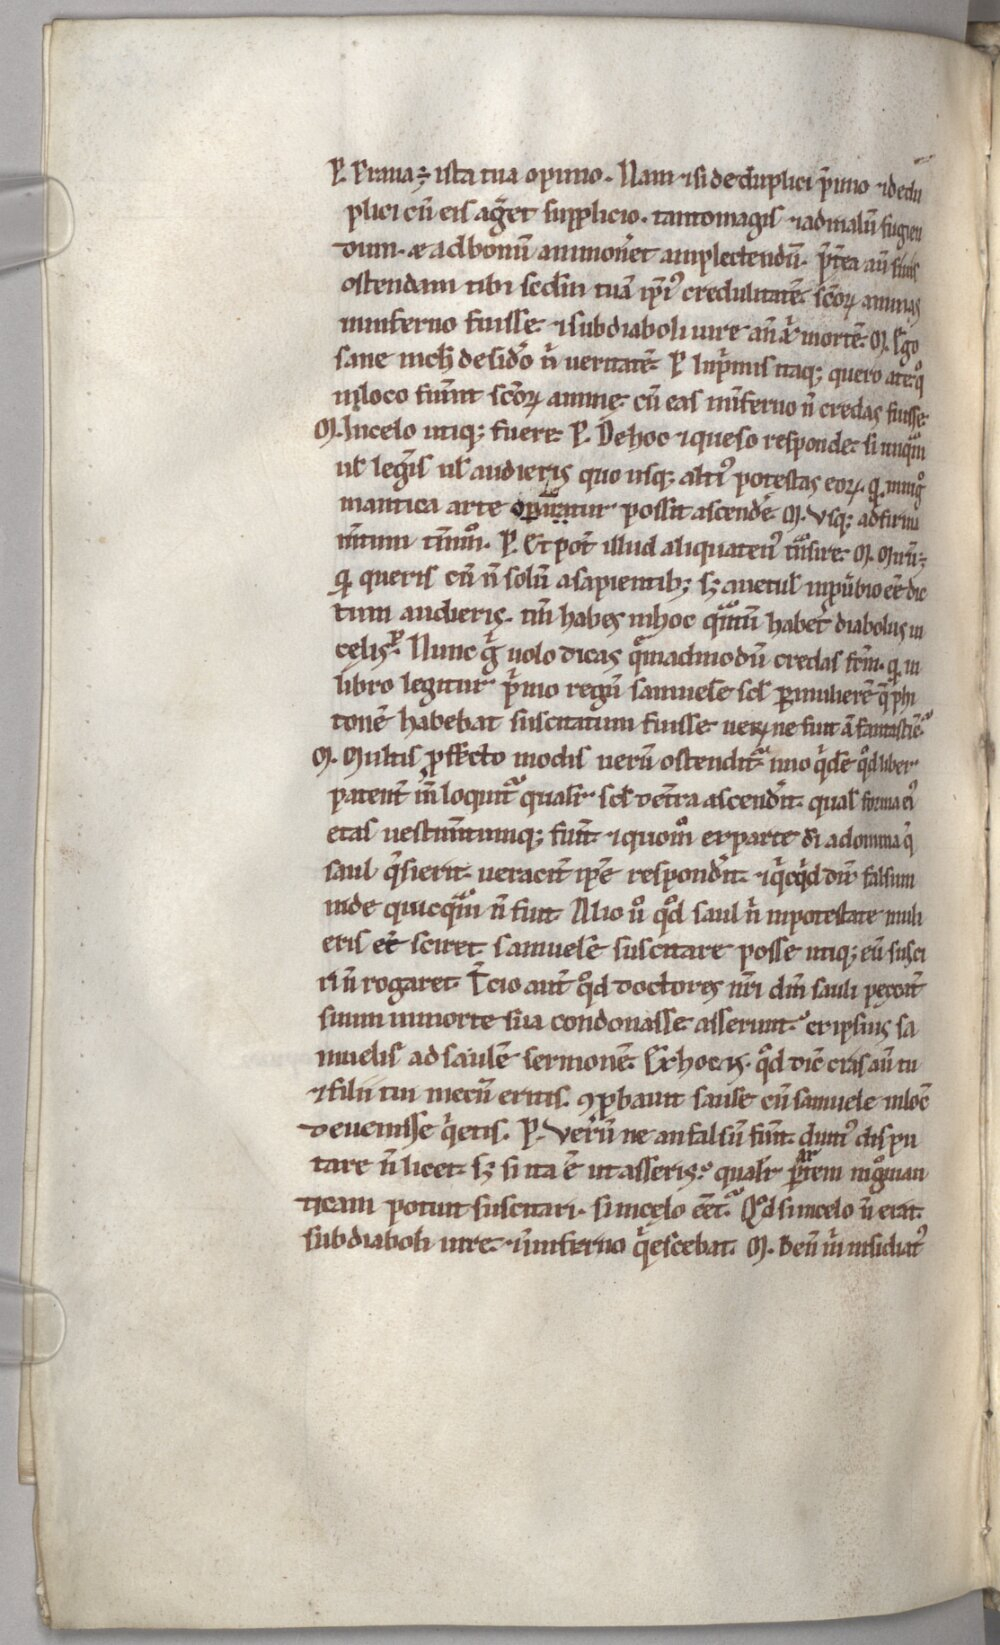 P. Praua ÷ ista tua opinio. Nam ⁊ si de duplici p̄mio ⁊ de du
plici cū eis aḡet supplicio. tanto magis ⁊ ad malū fugien
dum. & ad bonū ammoneret amplectendū. p̄tea
ostendam tibi scdm tuā ip̄i9 credulitatē. sc̄oꝝ animas
in inferno fuisse. ⁊ sub diaboli iure mortē. M. Ego
sane nich desidō n̄ veritatē. P. Inp̄mis itaq; quero a te. q°
in loco fuert sc̄oꝝ anime. cū eas in inferno n̄ credas fuisse.
M. In celo utiq; fuere. P. De hoc ⁊ queso responde. si unquā
ul legis ul audieris quo usq; alti9 potestas eoꝝ. qi nnig°
mantica arte opantur possit ascendē. M. Vsq; ad firma
mtum P. Et pot illud aliquaten9 tnsire. M. Miru÷
qi queris cū n̄ solū a sapientib; sz anetul inpubio eē dic
tum audieris. tm̄ habes in hoc q̄ntū habet diabolus in
celis. P. Nunc g° uolo dicas quēadmodū credas fcm. qi in
libro legitur p̄mo regū samuele scl p mulierē q̄ phi
tonē habebat suscitatum fuisse ueꝝ ne fuit an fantasticē.
M. Multis pfecto modis uerū ostendit° uno q̄de qd liber
patent in loquit° qualr scl de tra ascendit. qual forma ei9
etas uestimtumq; fuit. ⁊ quom° ex parte di a domina q̄
saul q̄sierit. ueracit ipse respondit. ⁊ q̄cq̄d dix falsum
inde quicquā n̄ fuit. Alio u° qd saul n̄ in potestate muli
eris eē sciret samuele suscitare posse utiq; eū susci
ri n̄ rogaret. Tcio aut qd doctores nri dm sauli peccat
suum in morte sua condonasse asserunt. ex ipsius sa
muelis ad saulē sermonē. Ex hoc is. qd dic cras aū tu
⁊ filii tui mecū eritis. ꝯpbant sause cū samuele in locē
deuenisse q̄etis. P. Verū ne an falsū sint. diuti9 dispu
tare n̄ licet. sz si ita ē ut asseris. qualr p artem nig°man
ticam potuit suscitari. si in celo eēt. Qd si in celo n̄ erat.
sub diaboli iure. ⁊ in inferno q̄escebat. M. Ben m̄ insidiat9